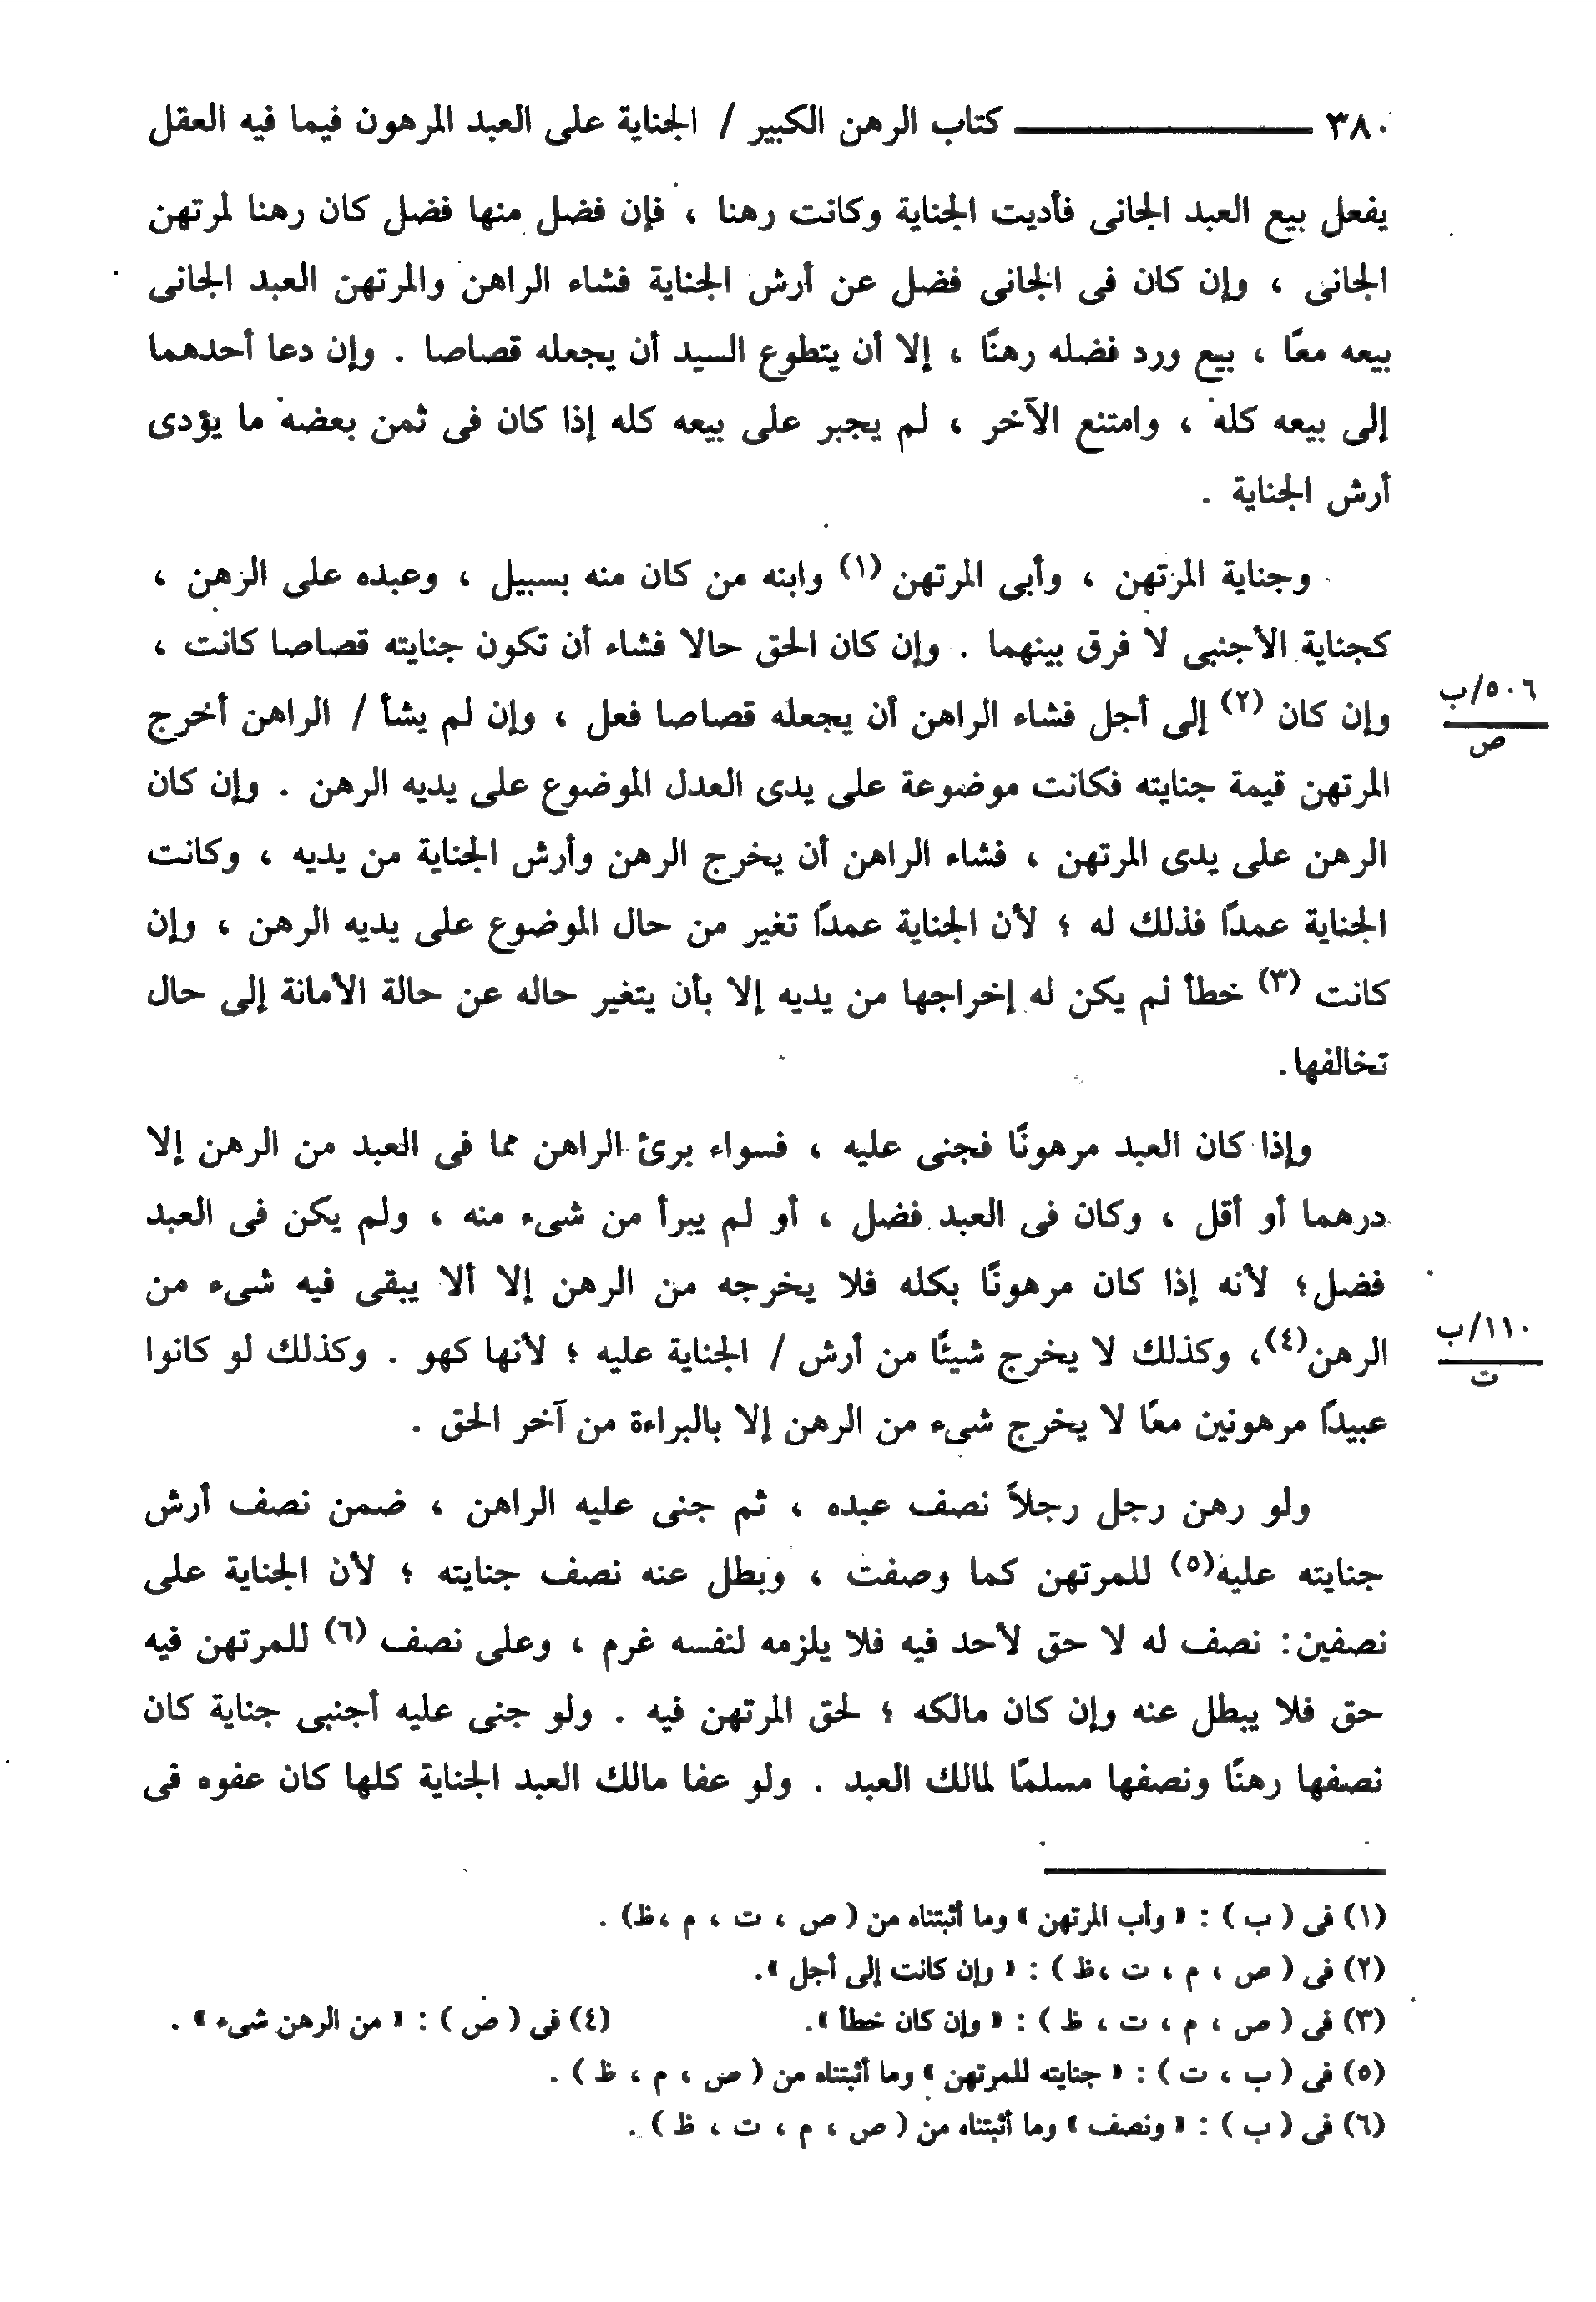 ٣٨٠ كتاب الرهن الكبير / الجناية على العبد المرهون فيما فيه العقل
يفعل بيع العبد الجانى فأديت الجناية وكانت رهنا ، فإن فضل منها فضل كان رهنا لمرتهن
الجانى ، وإن كان فى الجانى فضل عن أرش الجناية فشاء الراهن والمرتهن العبد الجانى
بيعه معًا ، بيع ورد فضله رهنًا ، إلا أن يتطوع السيد أن يجعله قصاصا . وإن دعا أحدهما
إلى بيعه كله ، وامتنع الآخر ، لم يجبر على بيعه كله إذا كان فى ثمن بعضه ما يؤدى
أرش الجناية .
وجناية المرتهن ، وأبى المرتهن (١) وابنه من كان منه بسبيل ، وعبده على الرهن ،
كجناية الأجنبى لا فرق بينهما . وإن كان الحق حالا فشاء أن تكون جنايته قصاصا كانت ،
وإن كان (٢) إلى أجل فشاء الراهن أن يجعله قصاصا فعل ، وإن لم يشأ / الراهن أخرج
٥٠٦/ب
ص
المرتهن قيمة جنايته فكانت موضوعة على يدى العدل الموضوع على يديه الرهن . وإن كان
الرهن على يدى المرتهن ، فشاء الراهن أن يخرج الرهن وأرش الجناية من يديه ، وكانت
الجناية عمدًا فذلك له ؛ لأن الجناية عمدًا تغير من حال الموضوع على يديه الرهن ، وإن
كانت (٣) خطأ لم يكن له إخراجها من يديه إلا بأن يتغير حاله عن حالة الأمانة إلى حال
تخالفها.
وإذا كان العبد مرهونًا فجنى عليه ، فسواء برئ الراهن مما فى العبد من الرهن إلا
درهما أو أقل ، وكان فى العبد فضل ، أو لم يبرأ من شىء منه ، ولم يكن فى العبد
فضل؛ لأنه إذا كان مرهونًا بكله فلا يخرجه من الرهن إلا ألا يبقى فيه شىء من
الرهن(٤)، وكذلك لا يخرج شيئًا من أرش / الجناية عليه ؛ لأنها كهو . وكذلك لو كانوا
١١٠/ب
ت
عبيدًا مرهونين معًا لا يخرج شىء من الرهن إلا بالبراءة من آخر الحق .
ولو رهن رجل رجلاً نصف عبده ، ثم جنى عليه الراهن ، ضمن نصف أرش
جنايته عليه(٥) للمرتهن كما وصفت ، وبطل عنه نصف جنايته ؛ لأن الجناية على
نصفين: نصف له لا حق لأحد فيه فلا يلزمه لنفسه غرم ، وعلى نصف (٦) للمرتهن فيه
حق فلا يبطل عنه وإن كان مالكه ؛ لحق المرتهن فيه . ولو جنى عليه أجنبى جناية كان
نصفها رهنًا ونصفها مسلمًا لمالك العبد . ولو عفا مالك العبد الجناية كلها كان عفوه فى
(١) فى ( ب ) : « وأب المرتهن » وما أثبتناه من ( ص ، ت ، م ،ظ) .
(٢) فى ( ص ، م ، ت ،ظ ) : « وإن كانت إلى أجل ».
(٣) فى ( ص ، م ، ت ، ظ ) : « وإن كان خطأ ». (٤) فى ( ص ) : « من الرهن شىء » .
(٥) فى ( ب ، ت ) : « جنايته للمرتهن » وما أثبتناه من ( ص ، م ، ظ ) .
(٦) فى ( ب ) : « ونصف » وما أثبتناه من ( ص ، م ، ت ، ظ ) .